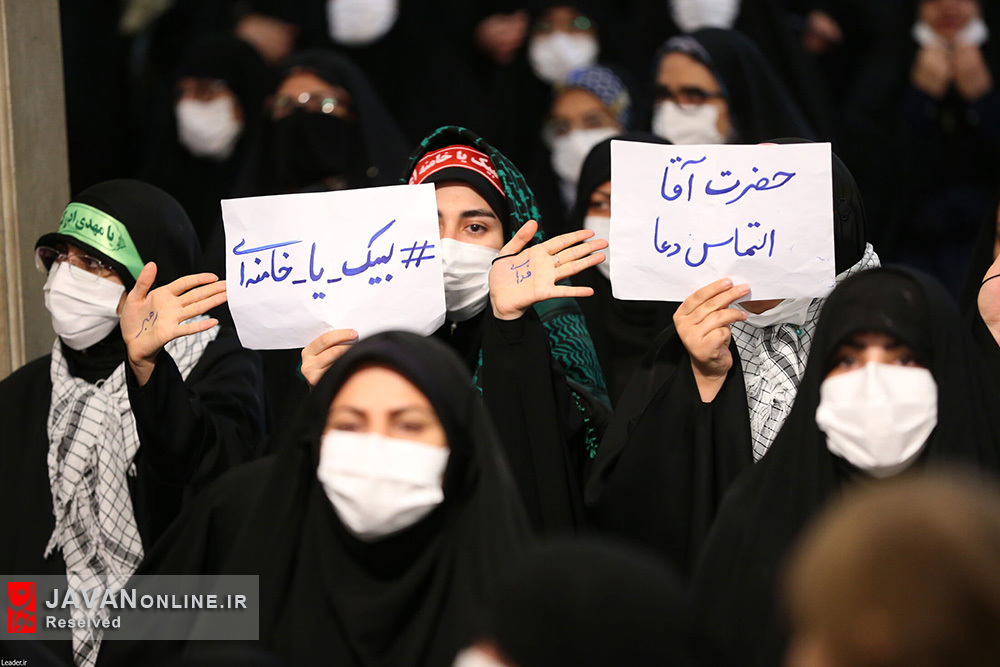 یا مهدی ادر
لبیک یا خامنه ا
#لبیک_یا_خامنه‌ای
حضرت آقا
التماس دعا
رهبر
فدایی
JAVANONLINE.IR
Reserved
Leader.ir